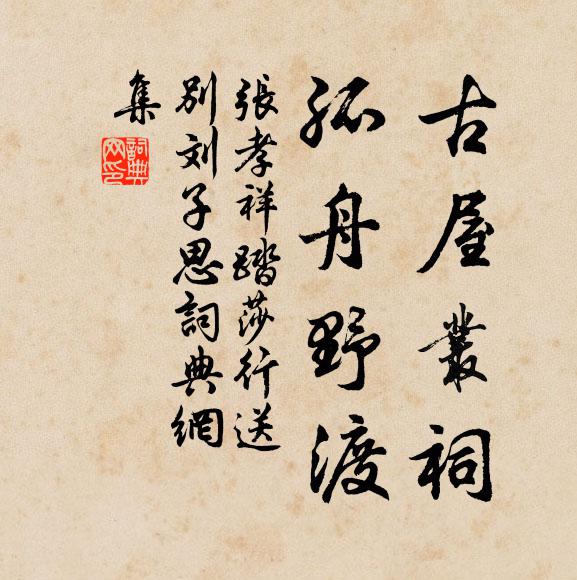 古屋叢祠
孤舟野渡
張孝祥踏莎行送
別刘子思詞典網
集
詞典网印